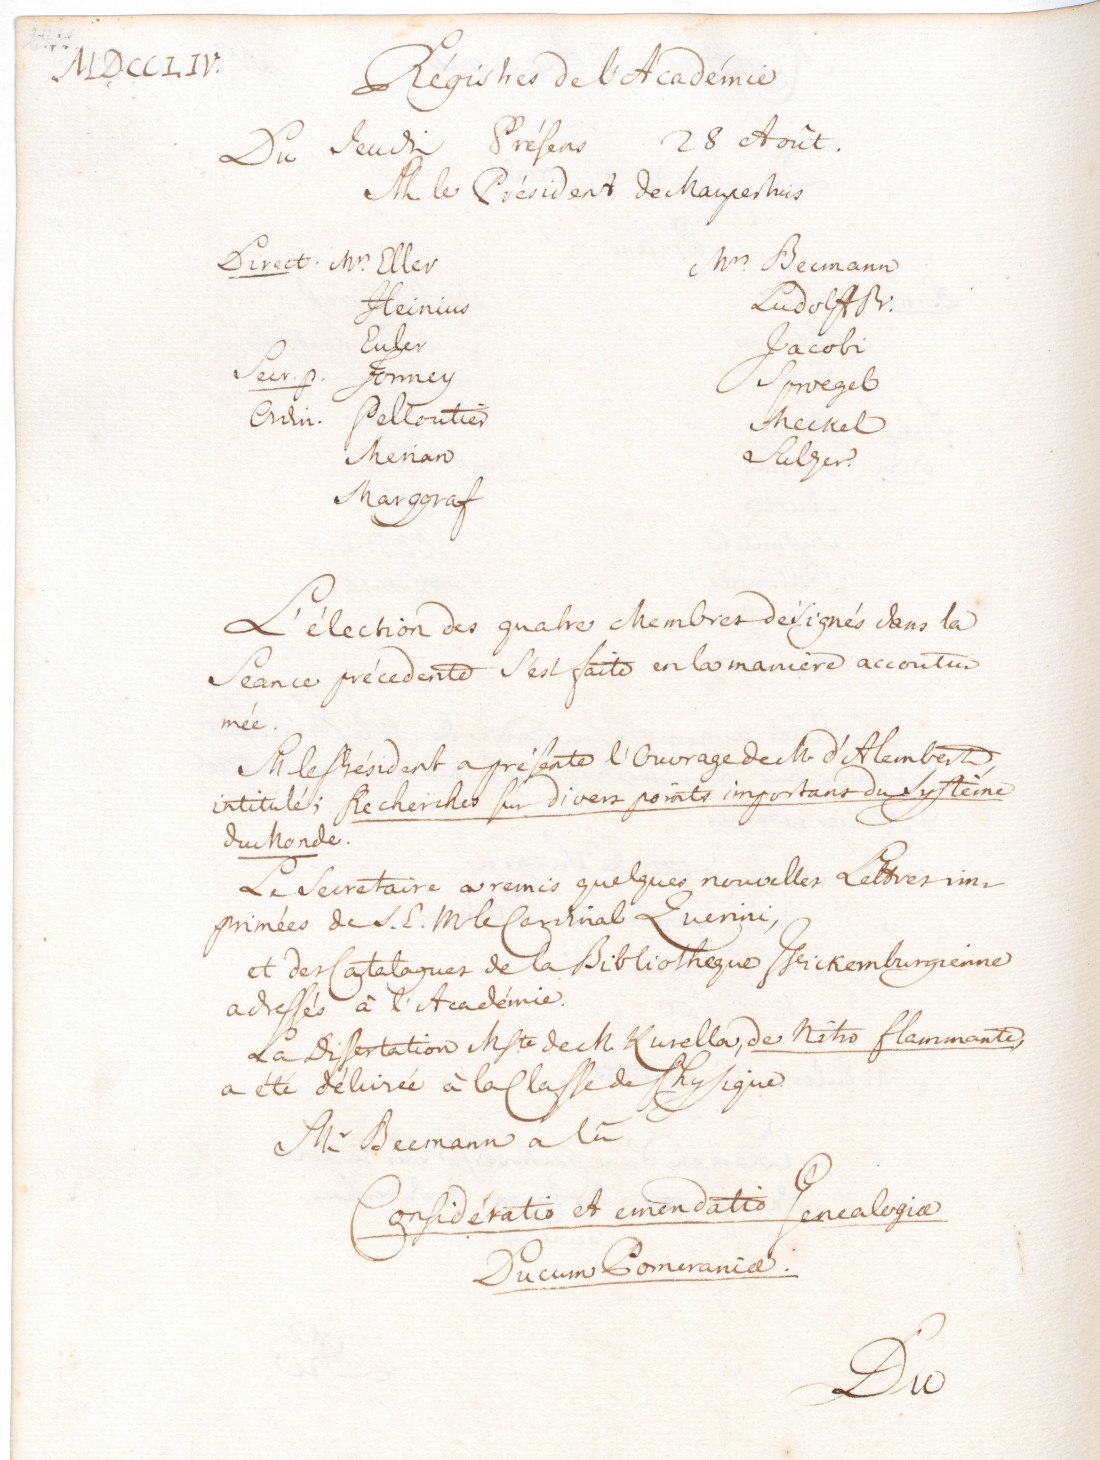 MDCCLIV.
Régistres de l'Académie
Du Jeudi Présens 28 Août.
M. le Président de Maupertuis
Direct. Mrs. Eller
Heinius
Euler
Secr. p. Formey
Ordin. Pelloutier
Merian
Marggraf
Mrs. Becmann
Ludolff Pr.
Jacobi
Sproegel
Meckel
Sulzer.
L'élection des quatre Membres désignés dans la
Séance précédente s'est faite en la manière accoutu
mée.
M. le Président a présenté l'Ouvrage de M. d'Alembert,
intitulé; Recherches sur divers points importans du Système
du Monde.
Le Secretaire a remis quelques nouvelles Lettres im-
primées de S. E. M. le Cardinal Querini,
et des Catalogues de la Bibliotheque
adressés à l'Académie.
La Dissertation Mste de M. Kurella, de Nitro flammante,
a été délivrée à la Classe de Physique
Mr. Becmann a lû
Considératio et emendatio Genealogiæ
Ducum Pomeraniæ.
Du